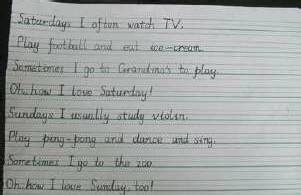 Saturdays I often watch TV.
Play football and eat ice-cream.
Sometimes I go to Grandma's to play.
Oh, how I love Saturday!
Sundays I usually study violin.
Play peng-pong and dance and sing.
Sometimes I go to the zoo.
Oh, how I love Sunday, too!